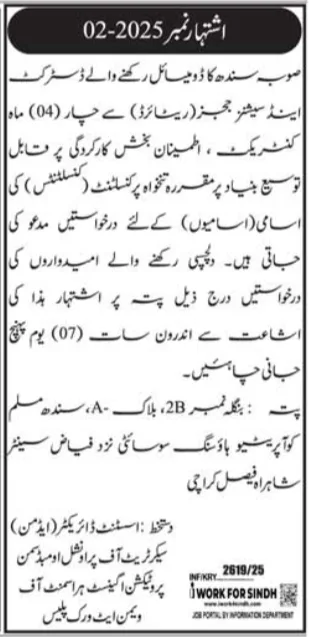 اشتہار نمبر 2025-02
صوبہ سندھ کا ڈومیسائل رکھنے والے ڈسٹرکٹ
اینڈ سیشنز ججز (ریٹائرڈ) سے چار (04) ماہ
کنٹریکٹ ، اطمینان بخش کارکردگی پر قابل
توسیع بنیاد پر مقررہ تنخواہ پر کنسلٹنٹ (کنسلٹنٹس) کی
اسامی (اسامیوں) کے لئے درخواستیں مدعو کی
جاتی ہیں۔ دلچسپی رکھنے والے امیدواروں کی
درخواستیں درج ذیل پتہ پر اشتہار ہذا کی
اشاعت سے اندرون سات (07) یوم پہنچ
جانی چاہئیں۔
پتہ : بنگلہ نمبر 2B، بلاک -A، سندھ مسلم
کوآپریٹیو ہاؤسنگ سوسائٹی نزد فیاض سینٹر
شاہراہ فیصل کراچی
دستخط : اسسٹنٹ ڈائریکٹر (ایڈمن)
سیکرٹریٹ آف پراونشل اومبڈسمن
پروٹیکشن اگینسٹ ہراسمنٹ آف
ویمن ایٹ ورک پلیس
INF/KRY 2619/25
I WORK FOR SINDH
www.iworkforsindh.com
JOB PORTAL BY INFORMATION DEPARTMENT